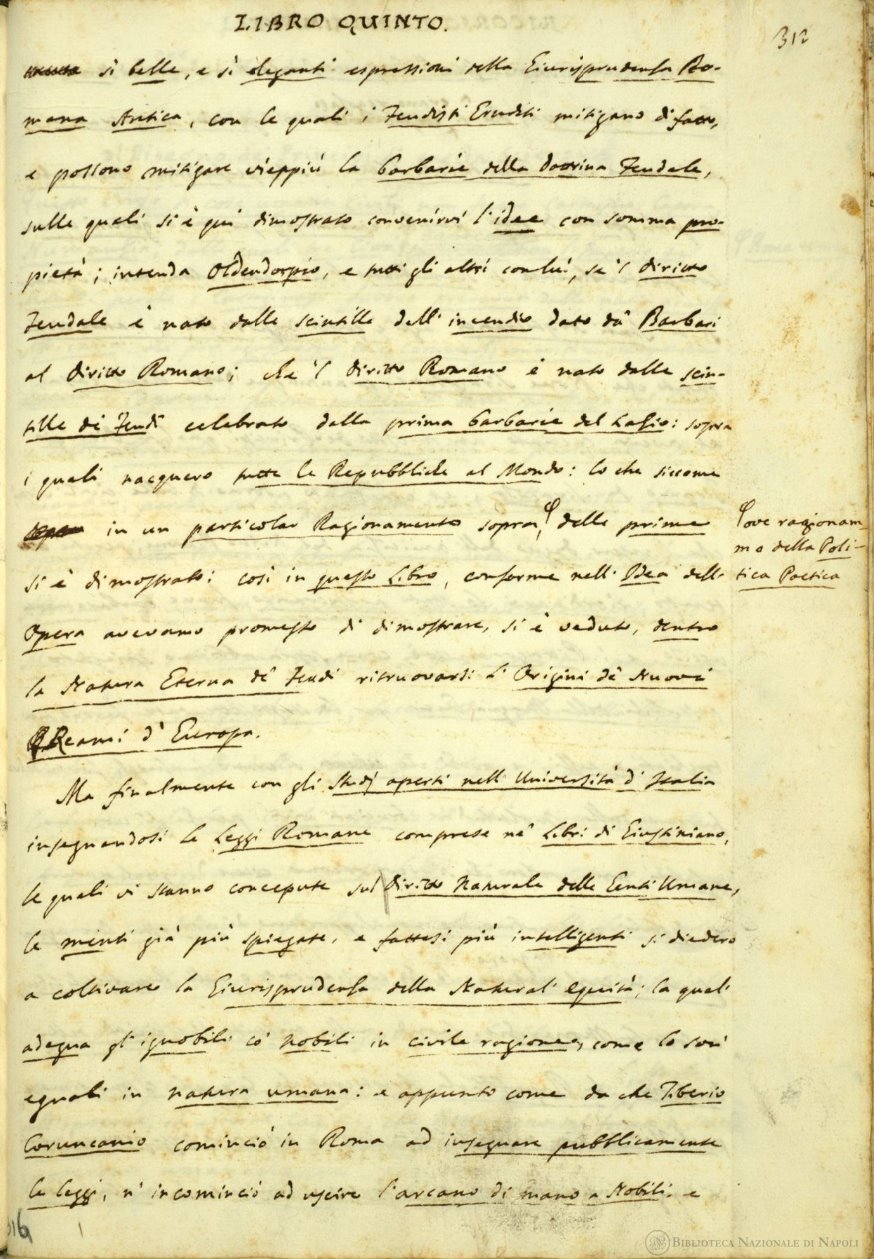 LIBRO QUINTO.
312
sì belle, e sì eleganti espressioni della Giurisprudenza Ro-
mana Antica, con le quali i Feudisti Eruditi mitigano di fatto,
e possono mitigare vieppiù la barbarie della dottrina Feudale,
sulle quali si è quì dimostrato convenirvi l'idee con somma pro-
pietà; intenda Oldendorpio, e tutti gli altri con lui, se 'l diritto
Feudale è nato dalle scintille dell'incendio dato da' Barbari
al diritto Romano; che 'l diritto Romano è nato dalle scin-
tille de' Feudi celebrato dalla prima barbarie del Lazio: sopra
i quali nacquero tutte le Repubbliche al Mondo: lo che siccome
in un particolar Ragionamento sopra, delle prime
ove ragionam-
mo della Poli-
tica Poetica
si è dimostrato: così in questo Libro, conforme nell'Idea dell'
Opera avevamo promesso di dimostrare, si è veduto, dentro
la Natura Eterna de' Feudi ritruovarsi l'Origini de' Nuovi
Reami d'Europa.
Ma finalmente con gli Studj aperti nell'Università d'Italia
insegnandosi le Leggi Romane comprese ne' Libri di Giustiniano,
le quali vi stanno concepute sul Diritto Naturale delle Genti Umane,
le menti già più spiegate, e fattesi più intelligenti si diedero
a coltivare la Giurisprudenza della Natural' equità; la qual'
adegua gl'ignobili co' Nobili in civile ragione, come lo son'
eguali in natura umana: e appunto come da che Tiberio
Coruncanio cominciò in Roma ad insegnare pubblicamente
le leggi, n' incominciò ad uscire l'arcano di mano a' Nobili; e
BIBLIOTECA NAZIONALE DI NAPOLI